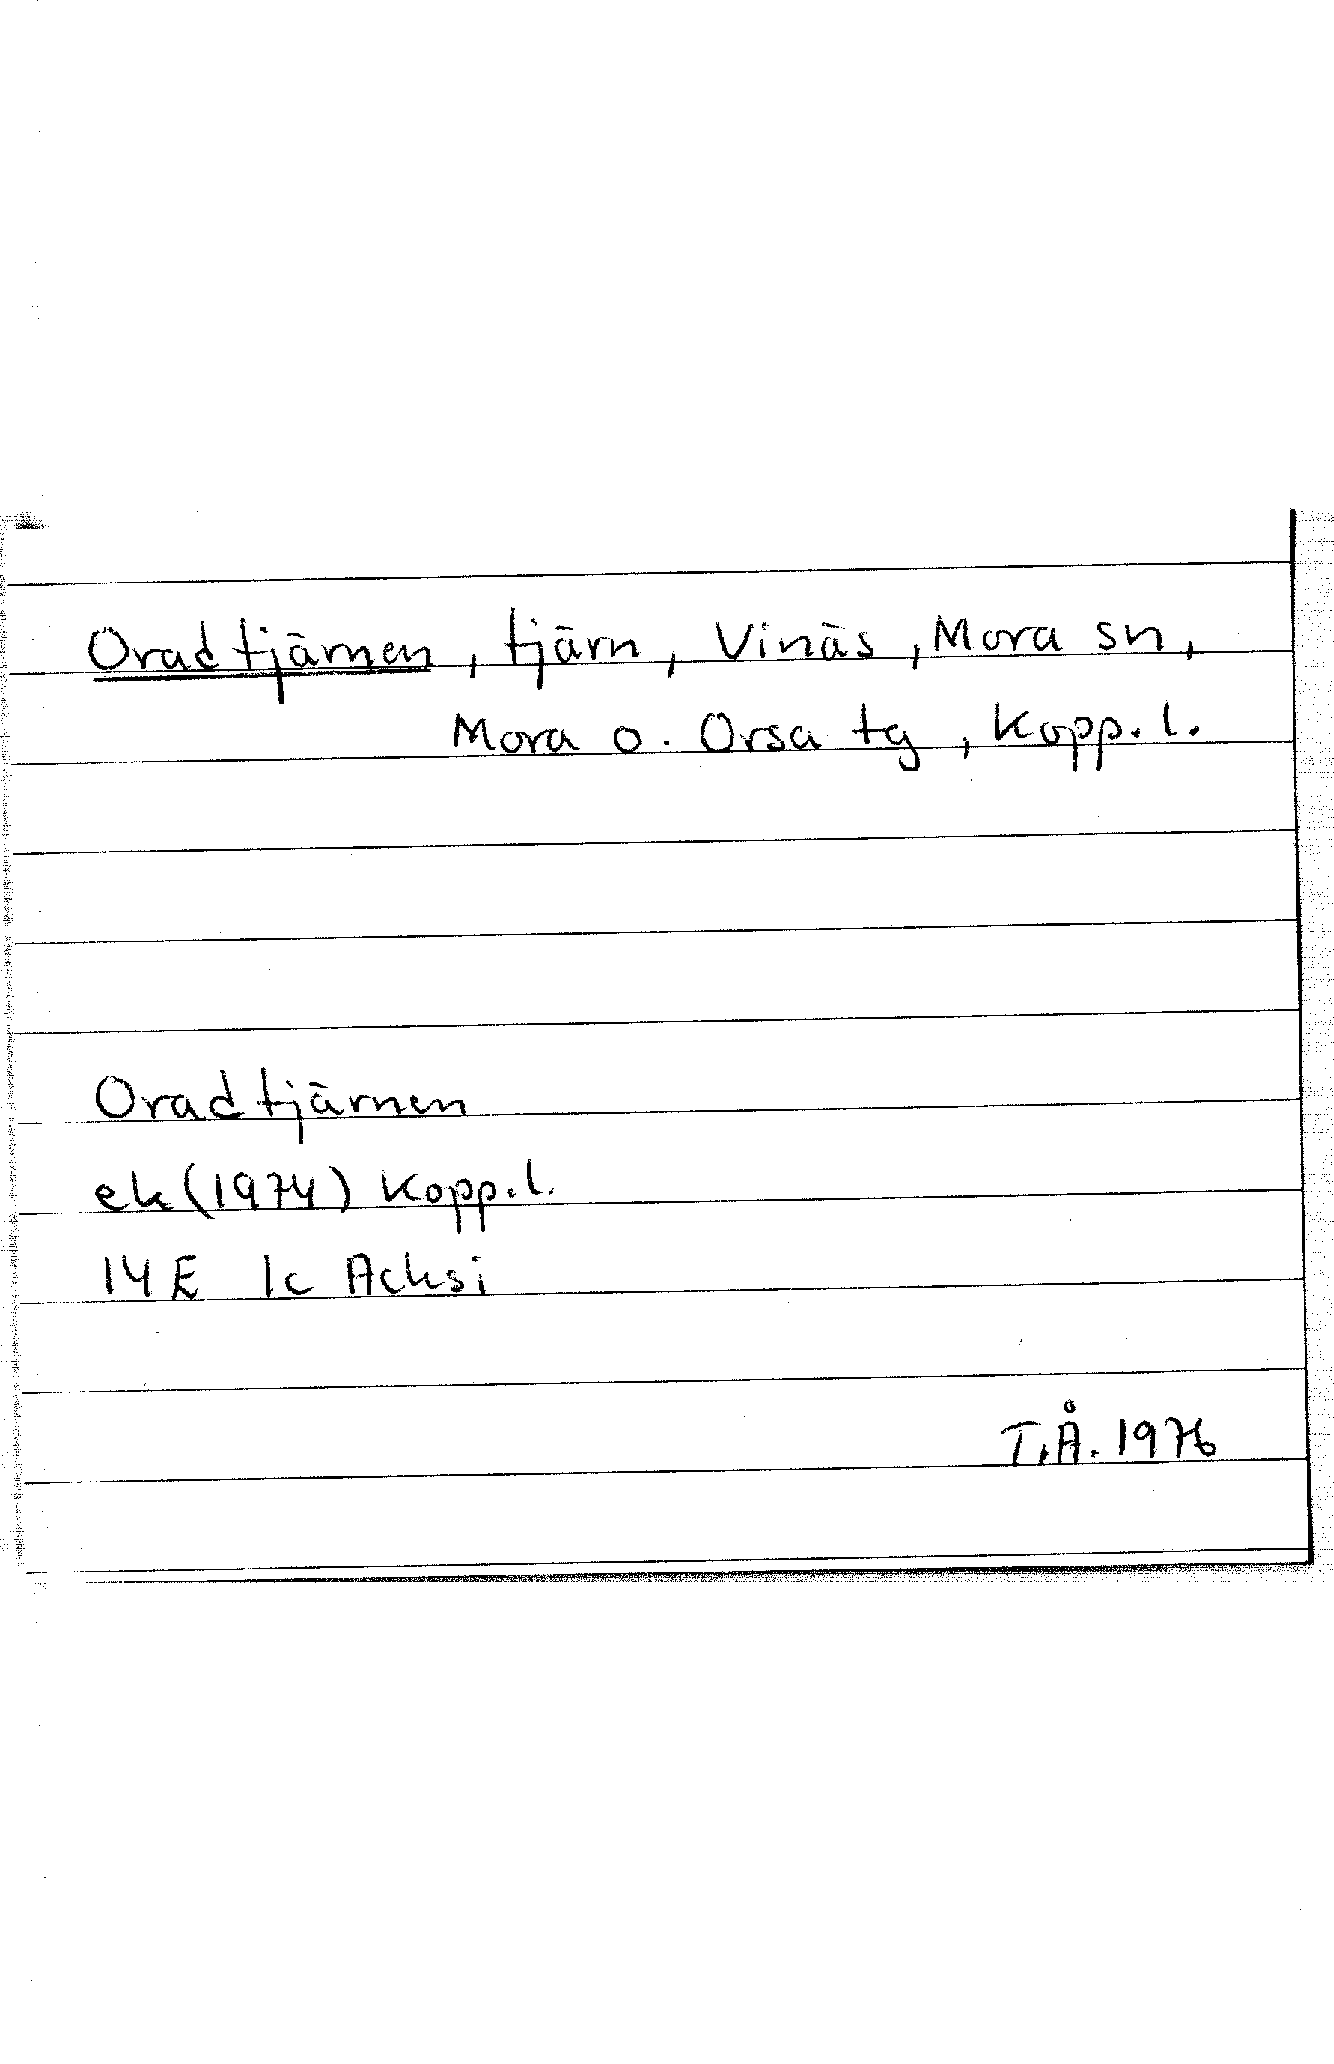 Oradtjärnen, tjärn, Vinäs, Mora sn,
Mora o. Orsa tg, Kopp. l.
Oradtjärnen
ek (1974) Kopp. l.
14 E 1c Acksi
T.Å. 1976